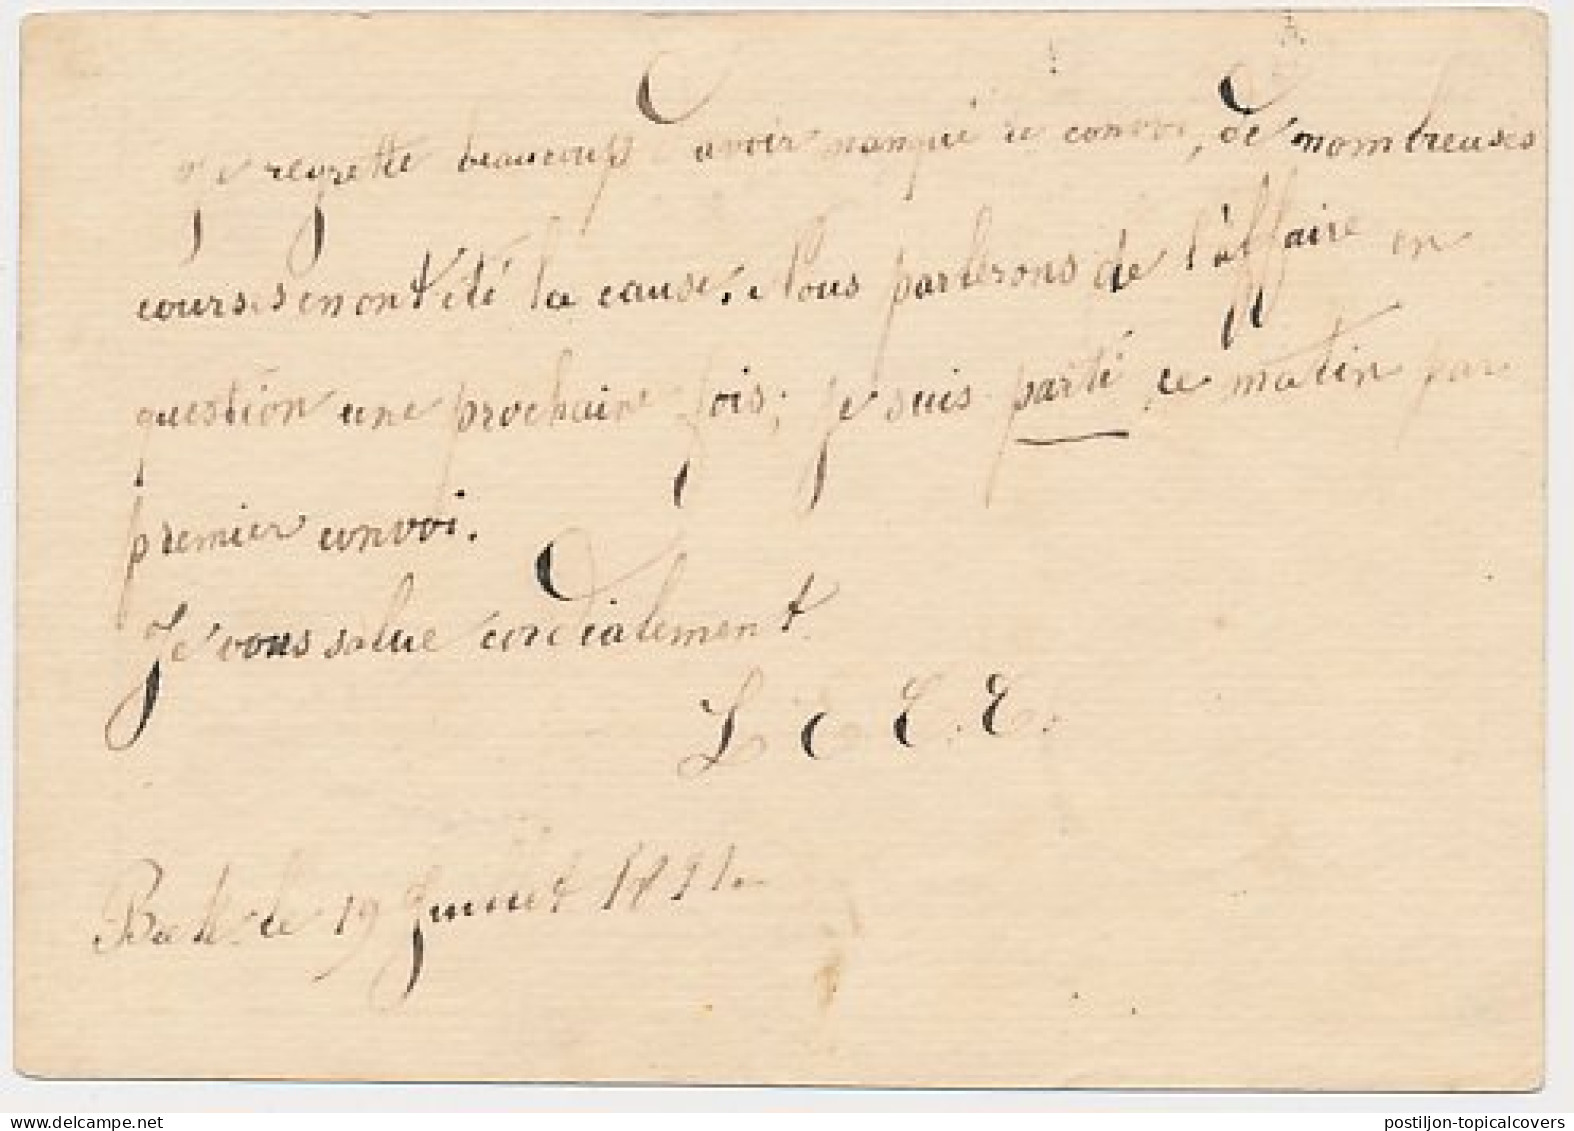 Je regrette beaucoup d'avoir manqué le convoi, de nombreuses
courses en ont été la cause. Nous parlerons de l'affaire en
question une prochaine fois; je suis parti ce matin par
premier convoi.
Je vous salue cordialement.
le 19 Juillet
postiljon-topicalcovers
delcampe.net